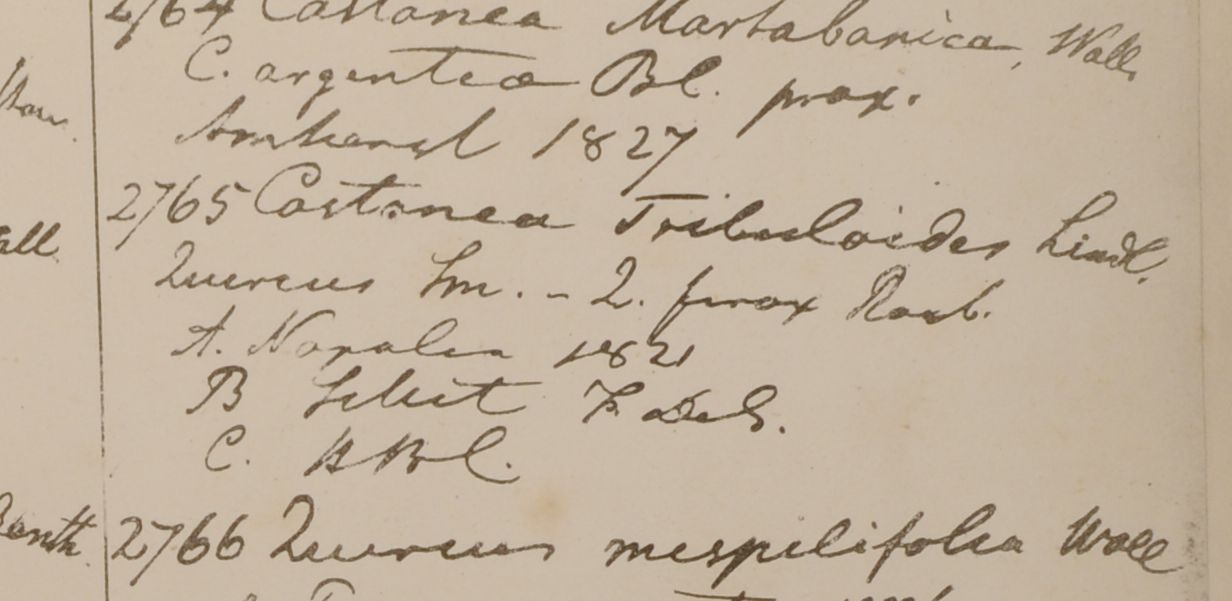 2764 Castanea Martabanica, Wall.
C. argentea Bl. prox.
Amherst 1827
2765 Castanea Tribuloides Lindl.
Quercus Sm. - Q. ferox Roxb.
A. Napalia 1821
B Silhet F. De S.
C. HBC.
2766 Quercus mespilifolia Wall